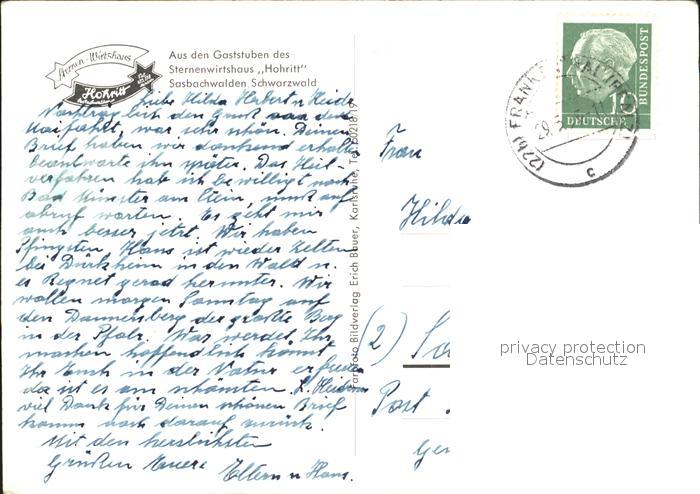 Sternen-Wirtshaus
Hohritt
Aus den Gaststuben des
Sternenwirtshaus „Hohritt"
Sasbachwalden Schwarzwald
Liebe Hilda Herbert u. Heide
Nachträglich den Gruß von der
Maifahrt, war sehr schön. Deinen
Brief haben wir dankend erhalten
beantworte ihn später. Das Heil-
verfahren hab ich bewilligt nach
Bad Münster am Stein, muß auf
abruf warten. Es geht mir
auch besser jetzt. Wir haben
Pfingsten. Hans ist wieder Zelten
bei Dürkheim in den Wald u.
es Regnet gerad herunter. Wir
wollen morgen Sonntag auf
den Donnersberg der größte Berg
in der Pfalz. Was werdet Ihr
machen hoffendlich könnt
Ihr Euch in der Natur erfreuen
da ist es am schönsten. L. Heidi
viel Dank für Deinen schönen Brief
komme noch darauf zurück.
Mit den herzlichsten
Grüßen Euere
Eltern u Hans.
Farbfoto Bildverlag Erich Bauer, Karlsruhe, Tel.
Frau
Hilda
(2)
Post
DEUTSCHE
BUNDESPOST
10
(22b) FRANKENTHAL (PFALZ)
c
privacy protection
Datenschutz